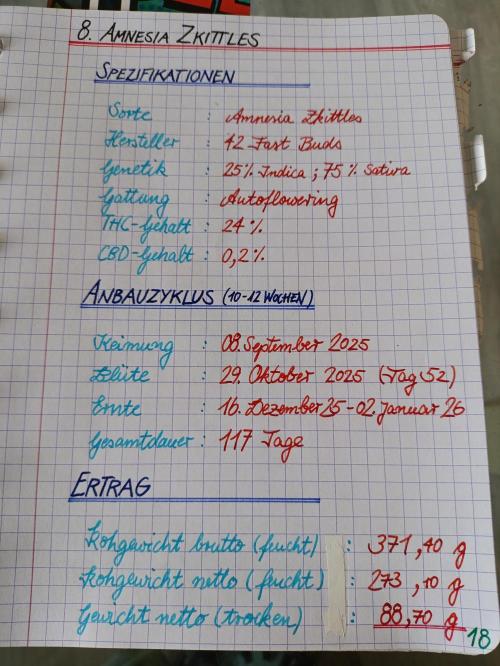 8. AMNESIA ZKITTLES
SPEZIFIKATIONEN
Sorte : Amnesia Zkittles
Hersteller : 42 Fast Buds
Genetik : 25% Indica ; 75% Sativa
Gattung : Autoflowering
THC-Gehalt : 24 %
CBD-Gehalt : 0,2 %
ANBAUZYKLUS (10-12 WOCHEN)
Keimung : 08. September 2025
Blüte : 29. Oktober 2025 (Tag 52)
Ernte : 16. Dezember 25 - 02. Januar 26
Gesamtdauer : 117 Tage
ERTRAG
Rohgewicht brutto (feucht) : 371,40 g
Rohgewicht netto (feucht) : 273,10 g
Gewicht netto (trocken) : 88,70 g
18